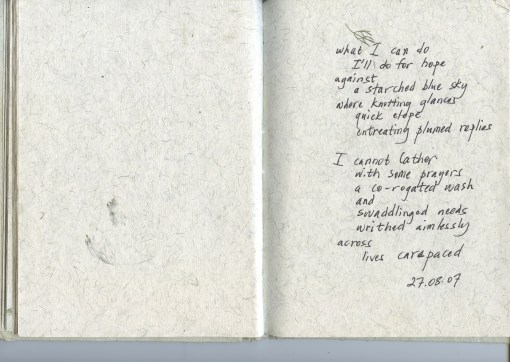 what I can do
I'll do for hope
against
a starched blue sky
where knitting glances
quick elope
entreating plumed replies
I cannot lather
with some prayers
a co-rogated wash
and
swaddlinged needs
writhed aimlessly
across
lives carapaced
27.08.07